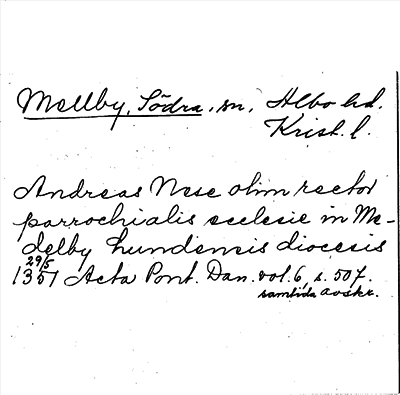 Mellby, Södra, sn, Albo hd.
Krist. l.
Andreas Nese olim rector
parrochialis ecclesie in Me-
delby hundensis diocesis
29/5
1351 Acta Pont. Dan. vol. 6, s. 507.
samtida avskr.